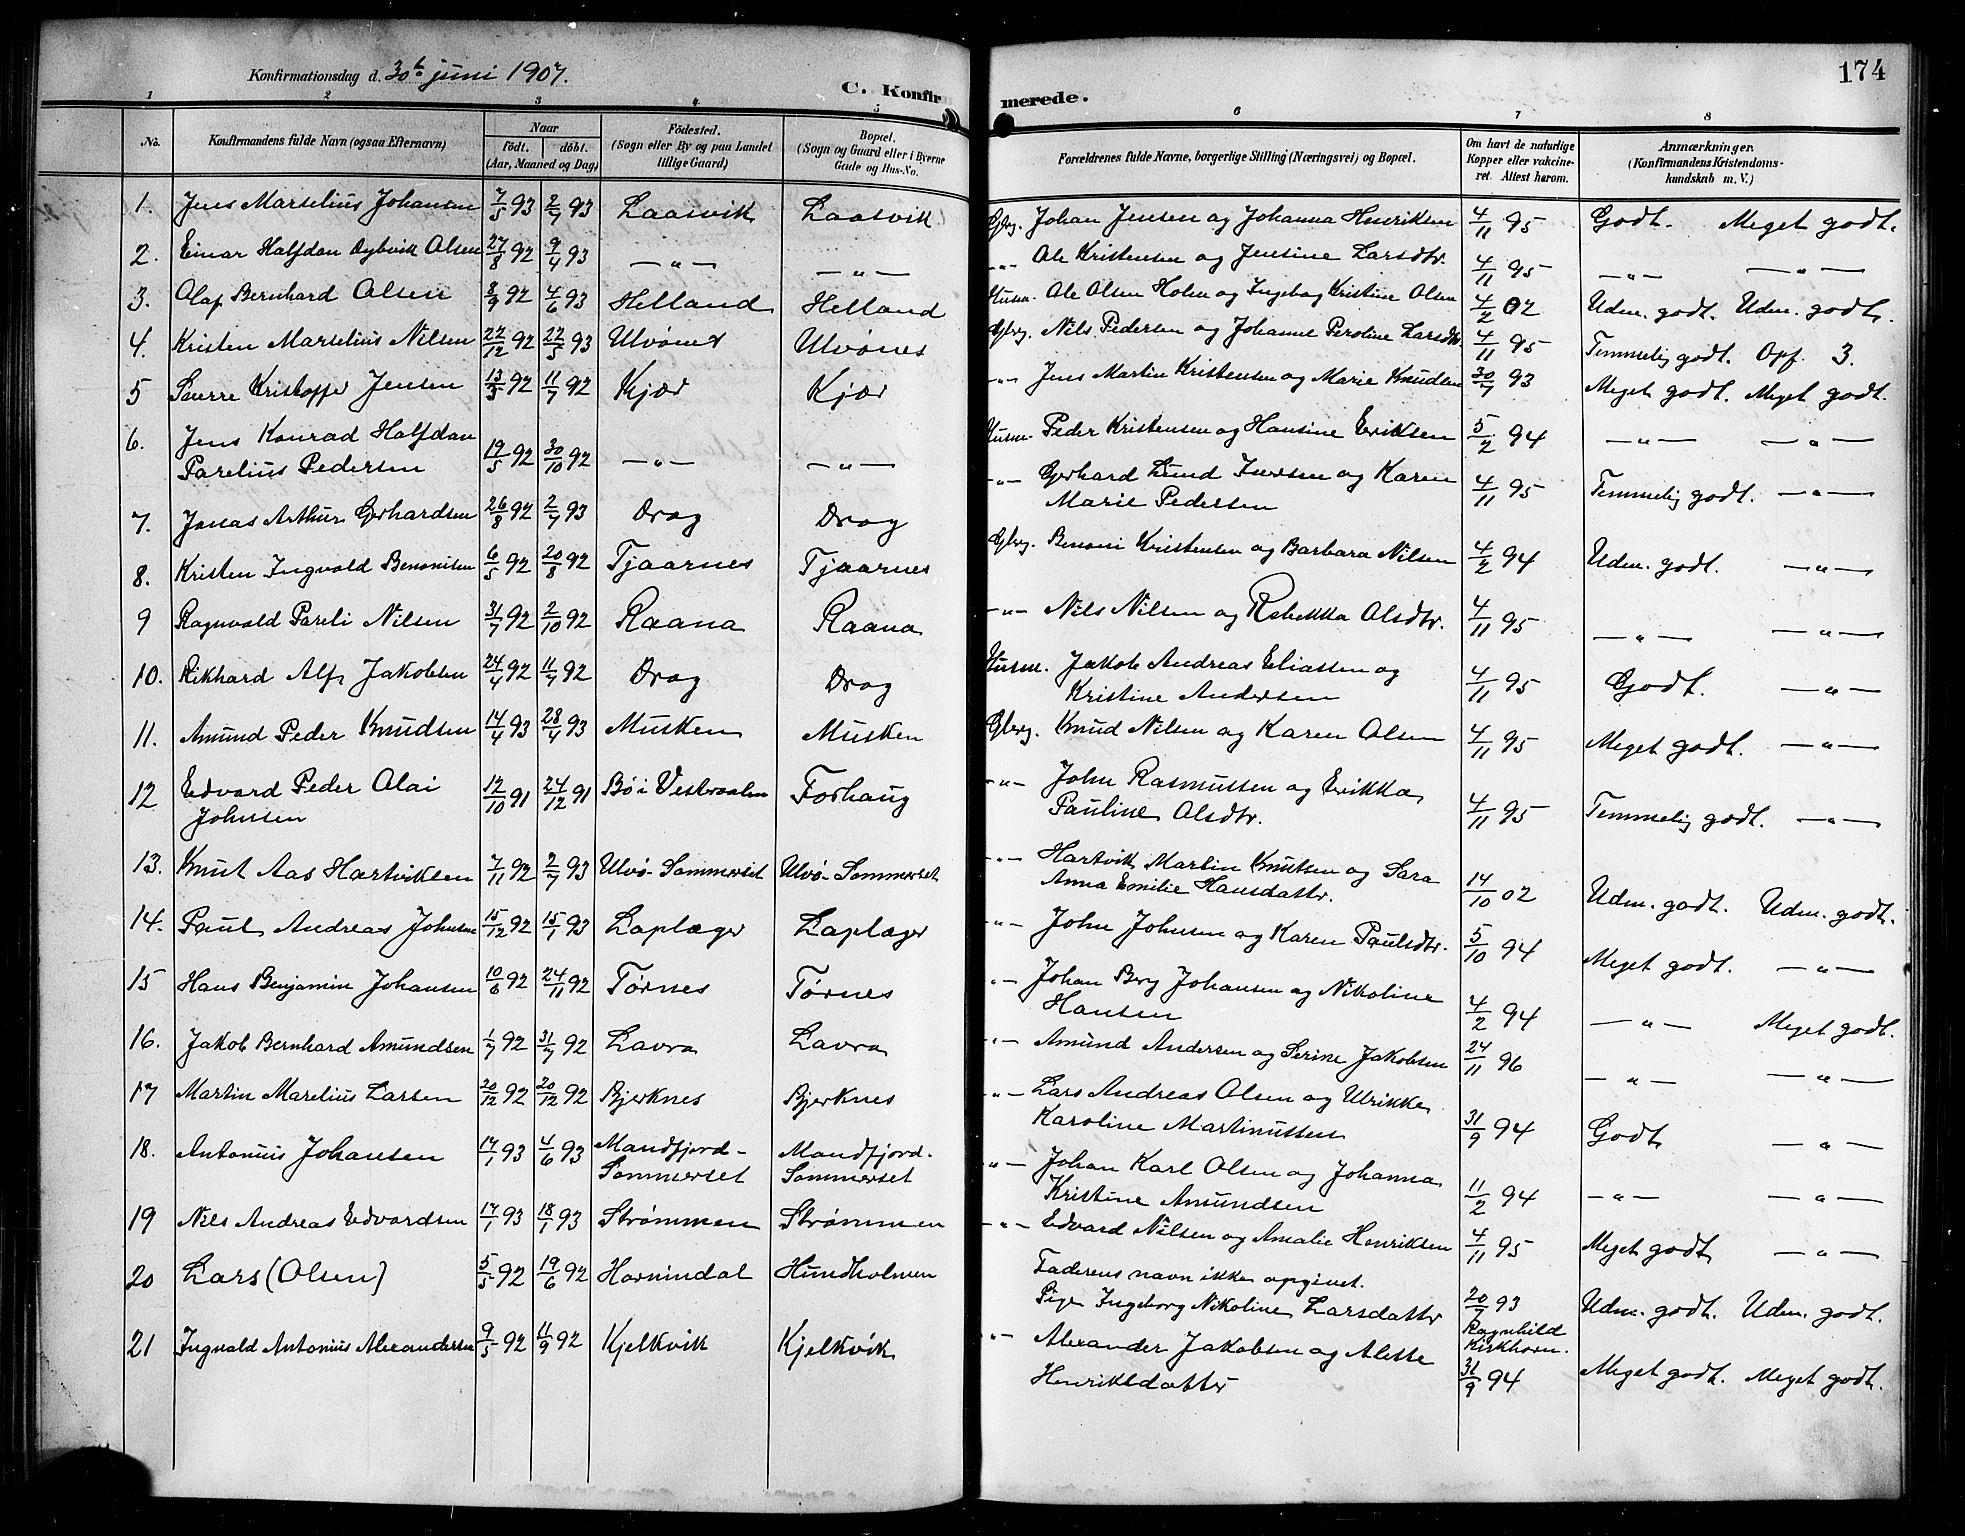 Konfirmationsdag d. 30te juni 1907.
C. Konfirmerede.
174
1 2 3 4 5 6 7 8
No. Konfirmandens fulde Navn (ogsaa Efternavn) Naar födt. döbt. (Aar, Maaned og Dag) Födested. (Sogn eller By og paa Landet tillige Gaard) Bopæl. (Sogn og Gaard eller i Byerne Gade og Hus-No. Forældrenes fulde Navne, borgerlige Stilling (Næringsvei) og Bopæl. Om havt de naturlige Kopper eller vakcineret. Attest herom. Anmærkninger. (Konfirmandens Kristendomskundskab m. V.)
1. Jens Marselius Johansen 7/5 93 2/7 93 Laasvik Laasvik Gbrg. Johan Jensen og Johanna Henriksen 4/11 95 Godt. Meget godt.
2. Einar Halfdan Dybvik Olsen 27/8 92 9/4 93 —„— —„— -„- Ole Kristensen og Jensine Larsdtr. 4/11 95 —„— —„—
3. Olaf Bernhard Olsen 8/9 92 4/6 93 Helland Helland Husm. Ole Olsen Holm og Ingebog Kristine Olsen 4/2 02 Udm. godt. Udm. godt.
4. Kristen Marselius Nilsen 22/12 92 22/5 93 Ulvønes Ulvønes Gbrg. Nils Pedersen og Johanne Peroline Larsdtr. 4/11 95 Temmelig godt. Opf. 3.
5 Sverre Kristoffer Jensen 13/3 92 11/7 92 Kjær Kjær -„- Jens Martin Kristensen og Marie Knudsen 30/7 93 Meget godt. Meget godt.
6. Jens Konrad Halfdan
Parelius Pedersen 19/5 92 30/10 92 —„— —„— Husm. Peder Kristensen og Hansine Eriksen 5/2 94 —„— —„—
7. Jonas Arthur Gerhardsen 26/8 92 2/7 93 Drag Drag -„- Gerhard Lund Iversen og Karen
Marie Pedersen 4/11 95 Temmelig godt. —„—
8. Kristen Ingvald Benonisen 6/5 92 20/8 92 Tjaarnes Tjaarnes Gbrg. Benoni Kristensen og Barbara Nilsen 4/2 94 Udm. godt. —„—
9 Ragnvald Pareli Nilsen 31/7 92 2/10 92 Raana Raana -„- Nils Nilsen og Rebekka Olsdtr. 4/11 95 —„— —„—
10. Rikhard Alf Jakobsen 24/4 92 11/7 92 Drag Drag Husm. Jakob Andreas Eliassen og
Kristine Andersen 4/11 95 Godt. —„—
11. Amund Peder Knudsen 14/4 93 28/4 93 Musken Musken Gbrg. Knud Nilsen og Karen Olsen 4/11 95 Meget godt. —„—
12 Edvard Peder Olai
Johnsen 12/10 91 24/12 91 Bø i Vesteraalen Forhaug -„- John Rasmussen og Erikka
Pauline Olsdtr. 4/11 95 Temmelig godt. —„—
13. Knut Aas Hartviksen 7/11 92 2/7 93 Ulvø-Sommerset Ulvø-Sommerset -„- Hartvik Martin Knutsen og Sara
Anna Emilie Hansdattr. 14/10 02 Udm. godt. Udm. godt.
14. Paul Andreas Johnsen 15/12 92 15/1 93 Laplæger Laplæger -„- John Johnsen og Karen Paulsdtr. 5/10 94 Meget godt. —„—
15 Hans Benjamin Johansen 10/6 92 24/11 92 Tørnes Tørnes -„- Johan Berg Johansen og Nikoline
Hansen 4/2 94 —„— Meget godt.
16. Jakob Bernhard Amundsen 1/7 92 31/7 92 Lavra Lavra -„- Amund Andersen og Serine Jakobsen 24/11 96 —„— —„—
17 Martin Marelius Larsen 20/12 92 20/12 92 Bjerknes Bjerknes -„- Lars Andreas Olsen og Ulrikke
Karoline Martinussen 31/9 94 Godt —„—
18. Antonius Johansen 17/1 93 4/6 93 Mandfjord-
Sommerset Mandfjord-
Sommerset -„- Johan Karl Olsen og Johanna
Kristine Amundsen 11/2 94 —„— —„—
19 Nils Andreas Edvardsen 17/1 93 18/1 93 Strømmen Strømmen -„- Edvard Nilsen og Amalie Henriksen 4/11 95 Meget godt —„—
20 Lars (Olsen) 5/5 92 19/6 92 Hornindal Hundholmen Faderens navn ikke opgivet.
Pige Ingeborg Nikoline Larsdattr 20/7 93 Ragnhild Kirkhorn. Udm. godt. Udm. godt.
21 Ingvald Antonius Alexandersen 9/5 92 11/9 92 Kjelkvik Kjelkvik -„- Alexander Jakobsen og Alette
Henriksdatter 31/9 94 Meget godt. Meget godt.